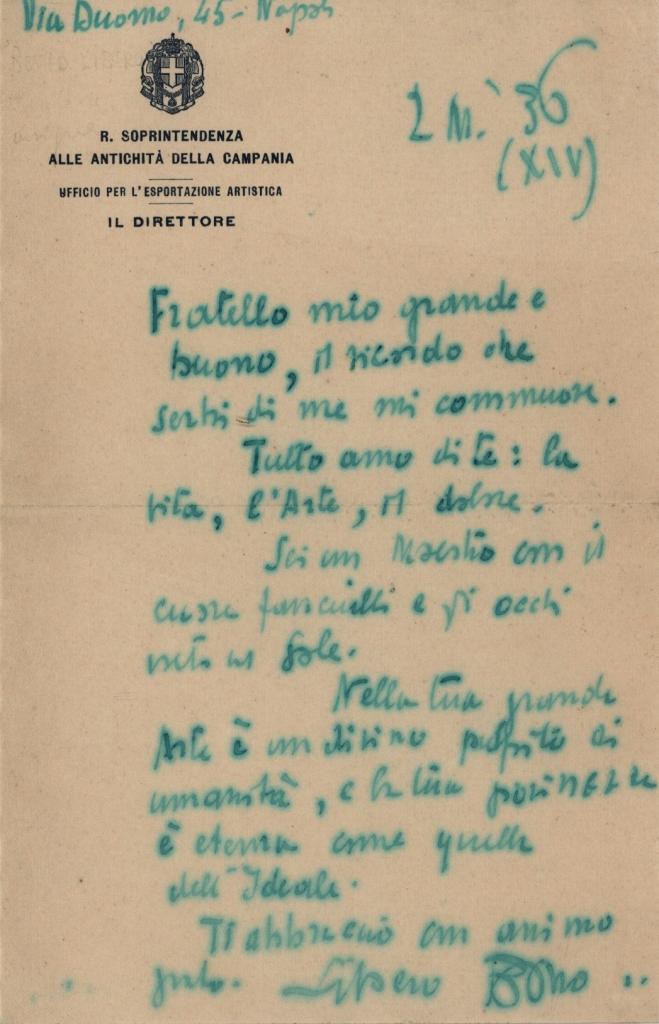 Via Duomo, 45 - Napoli
R. SOPRINTENDENZA
ALLE ANTICHITÀ DELLA CAMPANIA
UFFICIO PER L'ESPORTAZIONE ARTISTICA
IL DIRETTORE
2 M. '36
(XIV)
Fratello mio grande e
buono, il ricordo che
serbi di me mi commuove.
Tutto amo di te: la
vita, l'Arte, il dolore.
Sei un Maestro con il
cuore fanciullo e gli occhi
al Sole.
Nella tua grande
Arte è un divino palpito di
umanità, e la tua giovinezza
è eterna come quella
dell'Ideale.
Ti abbraccio con animo
grato. Libero Bovio